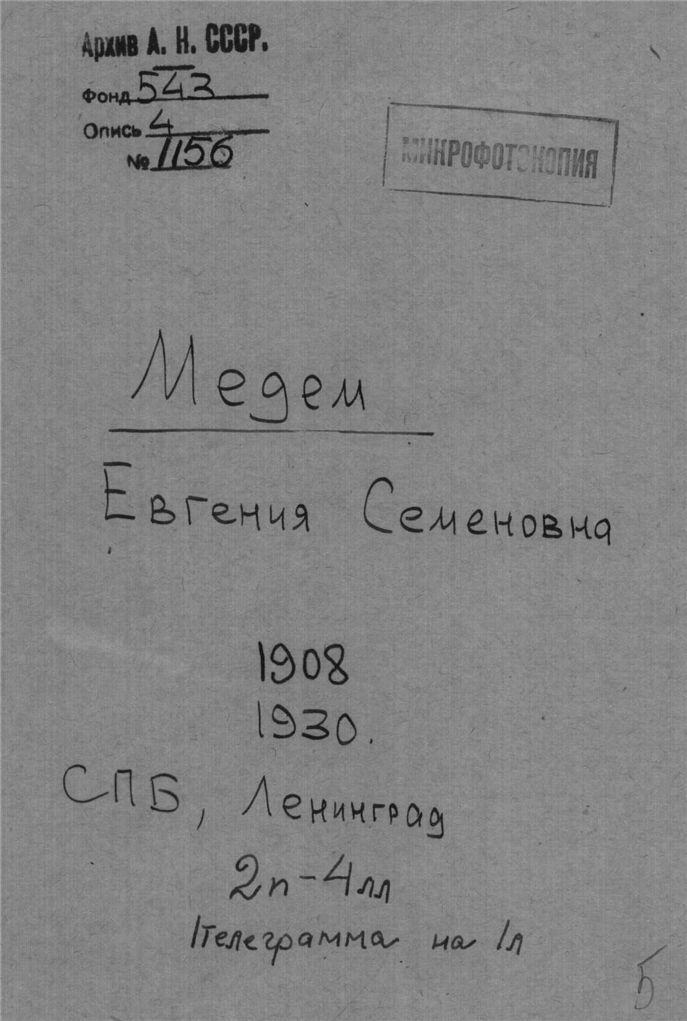 Архив А. Н. СССР.
Фонд 543
Опись 4
№ 1156
МИКРОФОТОКОПИЯ
Медем
Евгения Семеновна
1908
1930.
СПБ, Ленинград
2п-4лл
1телеграмма на 1л
5